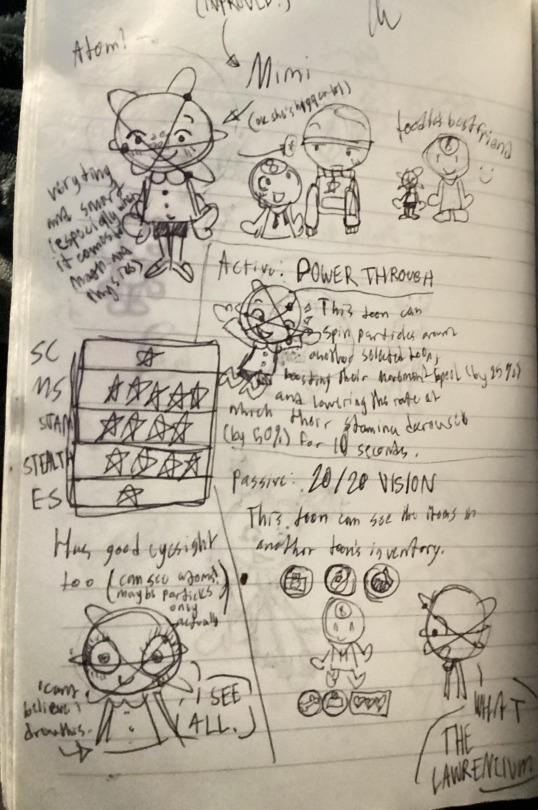 (IMPROVED!)
Atom!
Mimi
toodles best friend
very tiny
and smart
(especially when
it comes to
math and
physics)
Active: POWER THROUGH
This toon can
spin particles around
another selected toon,
boosting their movement speed (by 25%)
and lowering the rate at
which their stamina decreases
(by 50%) for 10 seconds.
SC
MS
STAM
STEALTH
ES
Passive: 20/20 VISION
This toon can see the items in
another toon's inventory.
Has good eyesight
too (can see atoms!
maybe particles
only
actually)
I SEE
ALL.
'cant
believe i
drew this.
WHAT
THE
LAWRENCIUM